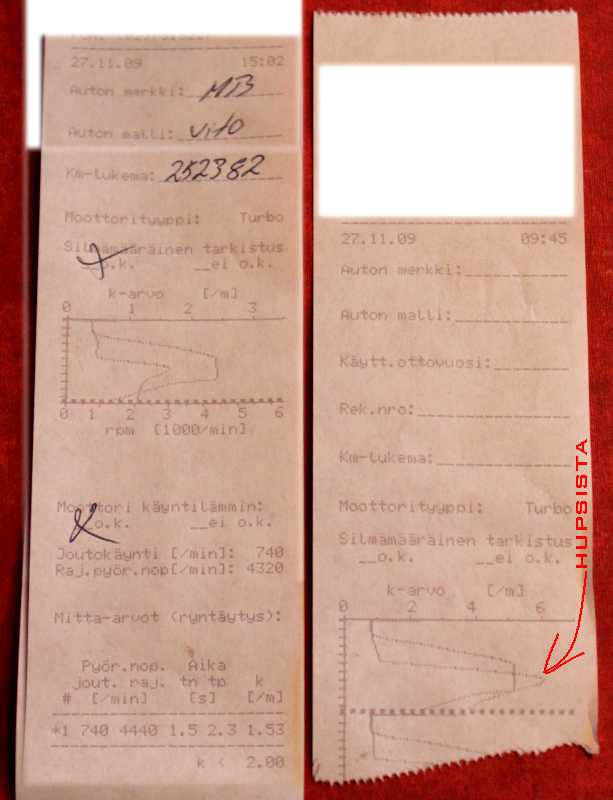 27.11.09 15:02
Auton merkki: MB
Auton malli: Vito
Km-lukema: 252382
Moottorityyppi: Turbo
Silmämääräinen tarkistus
__o.k. __ei o.k.
k-arvo [/m]
0 1 2 3
0 1 2 3 4 5 6
rpm [1000/min]
Moottori käyntilämmin:
__o.k. __ei o.k.
Joutokäynti [/min]: 740
Raj.pyör.nop[/min]: 4320
Mitta-arvot (ryntäytys):
Pyör.nop. Aika
jout. raj. tn tp k
# [/min] [s] [/m]
*1 740 4440 1.5 2.3 1.53
k < 2.00
27.11.09 09:45
Auton merkki:
Auton malli:
Käytt.ottovuosi:
Rek.nro:
Km-lukema:
Moottorityyppi: Turbo
Silmämääräinen tarkistus
__o.k. __ei o.k.
k-arvo [/m]
0 2 4 6
HUPSISTA